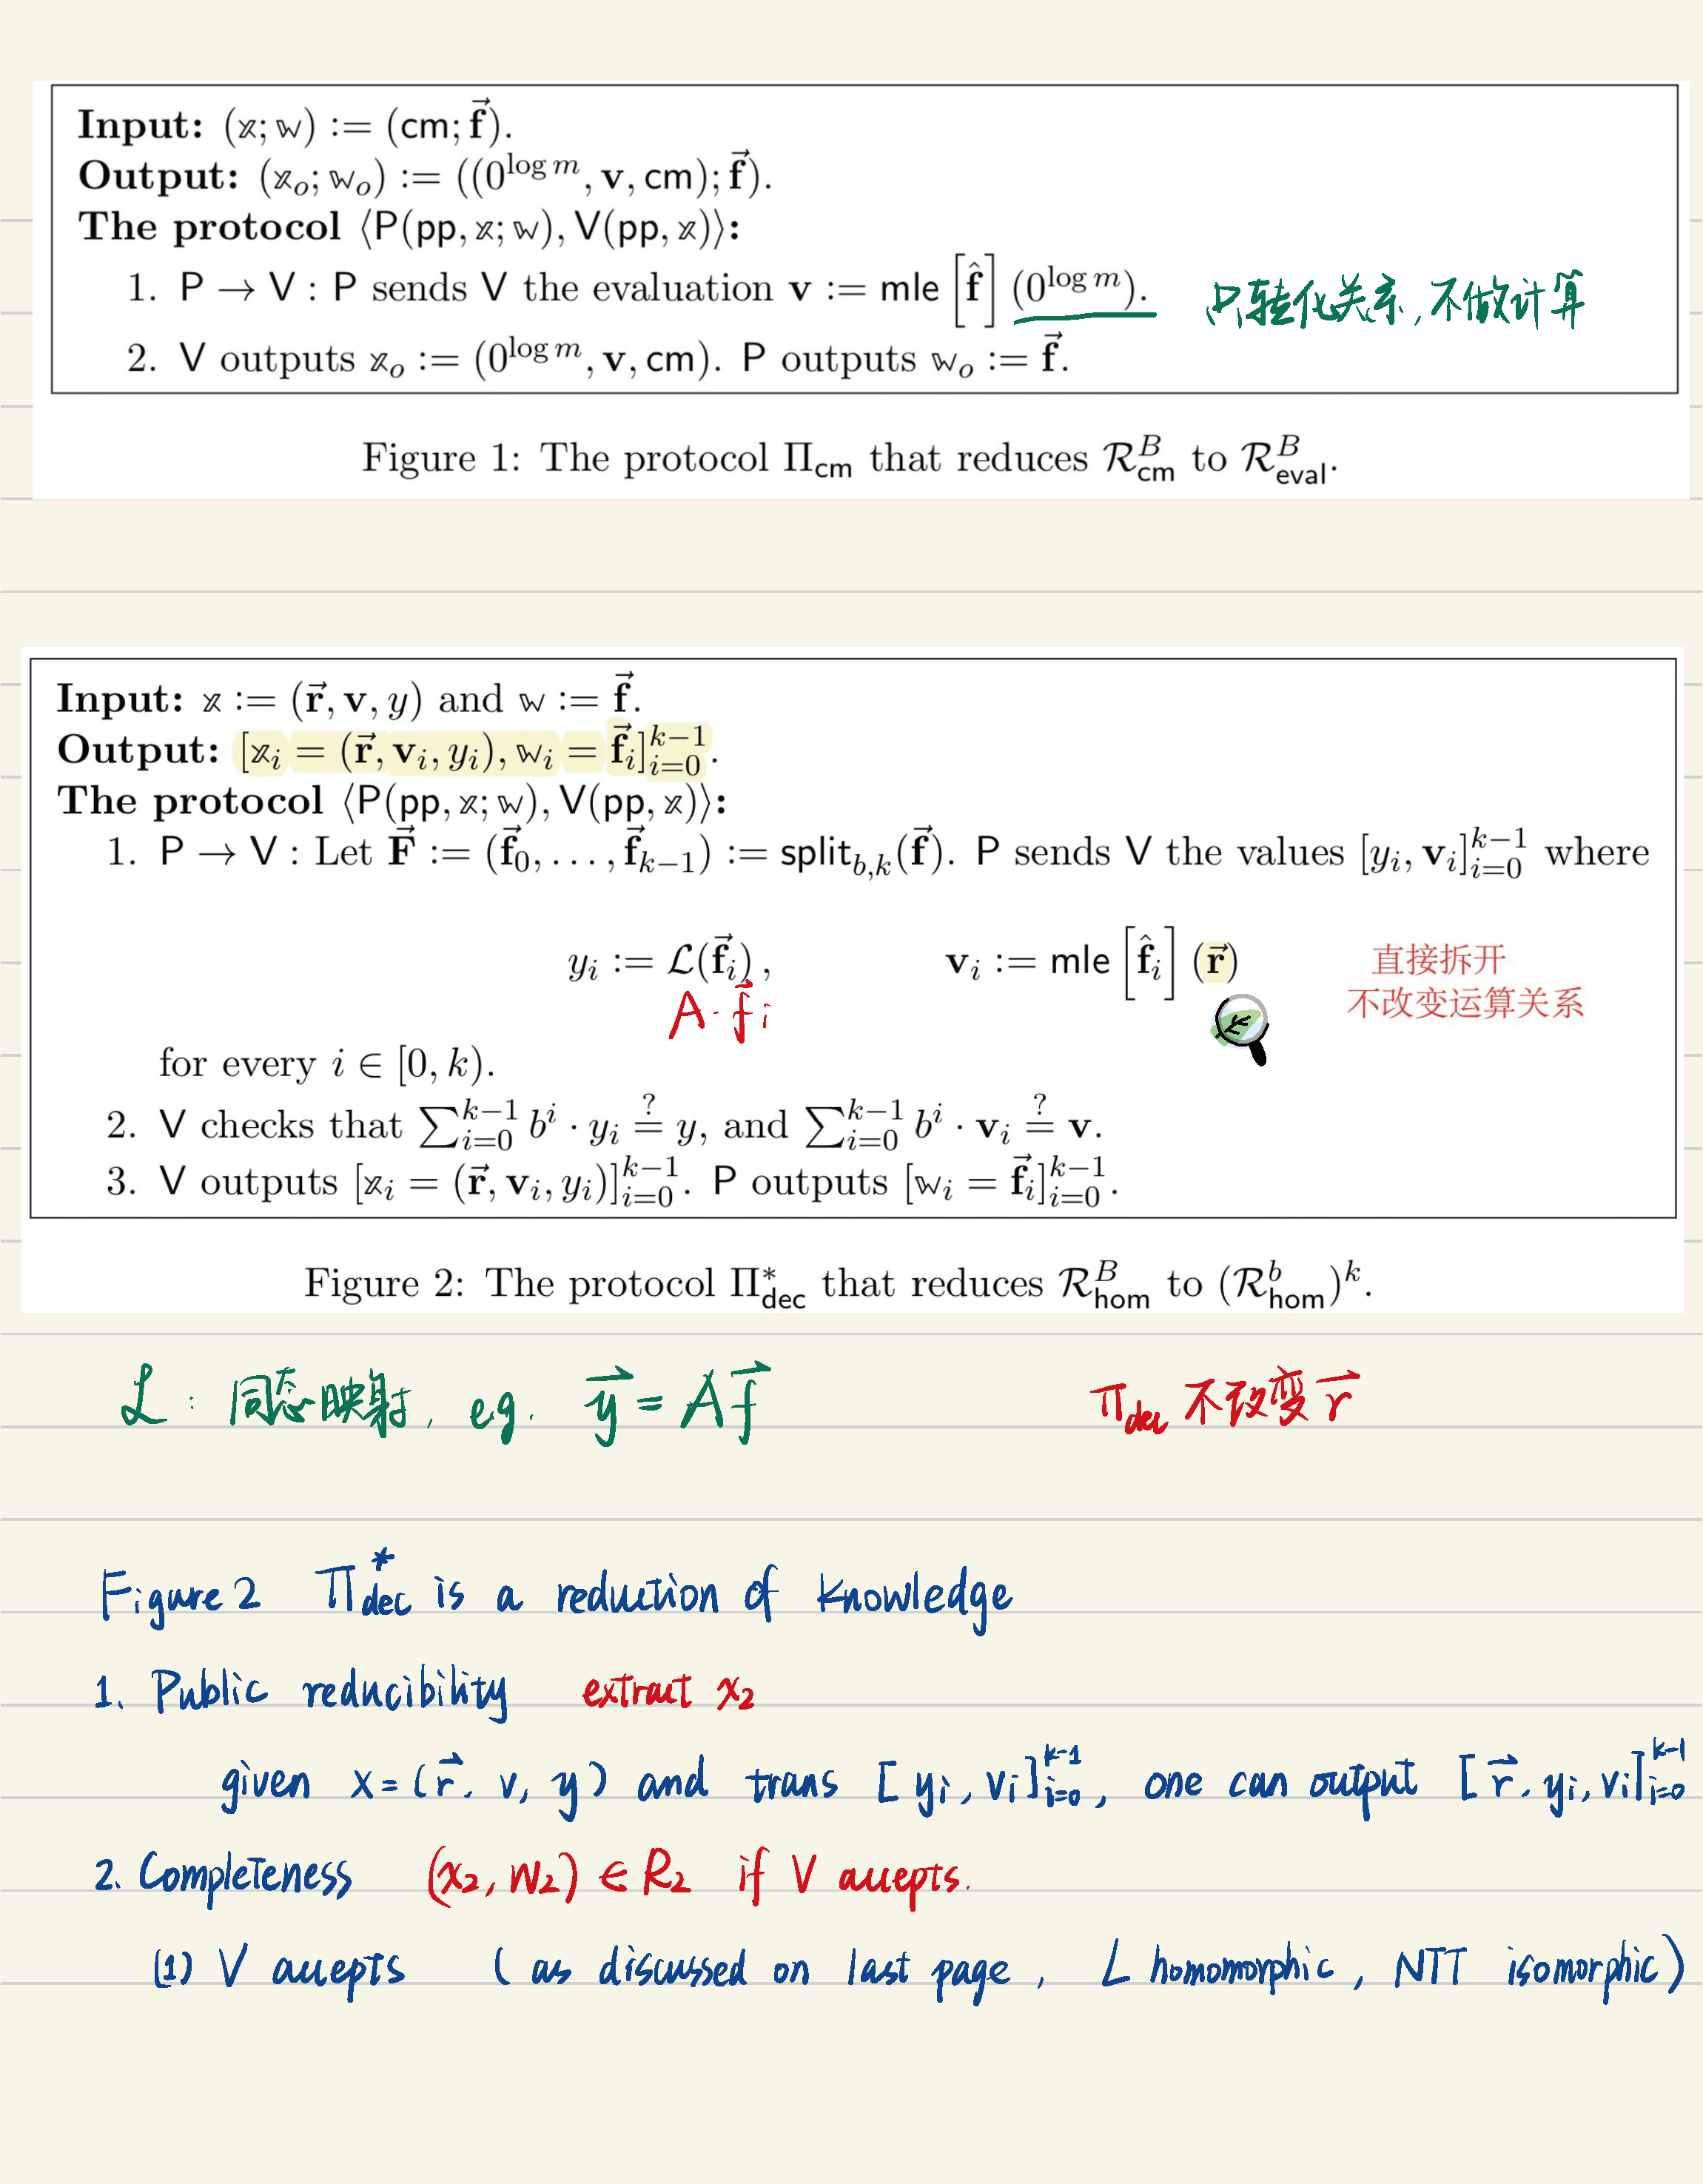 Input: (𝕩; 𝕨) := (cm; f⃗).
Output: (𝕩ₒ; 𝕨ₒ) := ((0^{log m}, v, cm); f⃗).
The protocol ⟨P(pp, 𝕩; 𝕨), V(pp, 𝕩)⟩:
1. P → V : P sends V the evaluation v := mle [f̂] (0^{log m}). 只转化关系,不做计算
2. V outputs 𝕩ₒ := (0^{log m}, v, cm). P outputs 𝕨ₒ := f⃗.
Figure 1: The protocol Π_{cm} that reduces R_{cm}^{B} to R_{eval}^{B}.
Input: 𝕩 := (r⃗, v, y) and 𝕨 := f⃗.
Output: [𝕩_i = (r⃗, v_i, y_i), 𝕨_i = f⃗_i]_{i=0}^{k−1}.
The protocol ⟨P(pp, 𝕩; 𝕨), V(pp, 𝕩)⟩:
1. P → V : Let F⃗ := (f⃗_0, . . . , f⃗_{k−1}) := split_{b,k}(f⃗). P sends V the values [y_i, v_i]_{i=0}^{k−1} where
y_i := ℒ(f⃗_i) , v_i := mle [f̂_i] (r⃗) 直接拆开
A·f⃗i 不改变运算关系
for every i ∈ [0, k).
2. V checks that ∑_{i=0}^{k−1} b^i · y_i ≟ y, and ∑_{i=0}^{k−1} b^i · v_i ≟ v.
3. V outputs [𝕩_i = (r⃗, v_i, y_i)]_{i=0}^{k−1}. P outputs [𝕨_i = f⃗_i]_{i=0}^{k−1}.
Figure 2: The protocol Π*_{dec} that reduces R_{hom}^{B} to (R_{hom}^{b})^k.
ℒ : 同态映射, eg. y⃗ = A f⃗ Π_{dec} 不改变 r⃗
Figure 2 Π*_{dec} is a reduction of knowledge
1. Public reducibility extract x₂
given x = (r⃗, v, y) and trans [yi, vi]_{i=0}^{k-1}, one can output [r⃗, yi, vi]_{i=0}^{k-1}
2. Completeness (x₂, w₂) ∈ R₂ if V accepts.
(1) V accepts ( as discussed on last page, L homomorphic, NTT isomorphic)